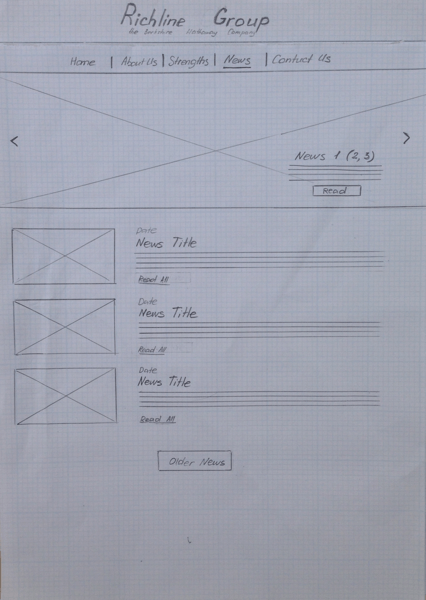 Richline Group
the Company
Home | About Us | Strengths | News | Contact Us
< >
News 1 (2, 3)
Read
Date
News Title
Read All
Date
News Title
Read All
Date
News Title
Read All
Older News